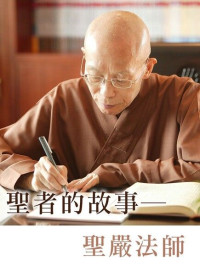 聖者的故事—
聖嚴法師